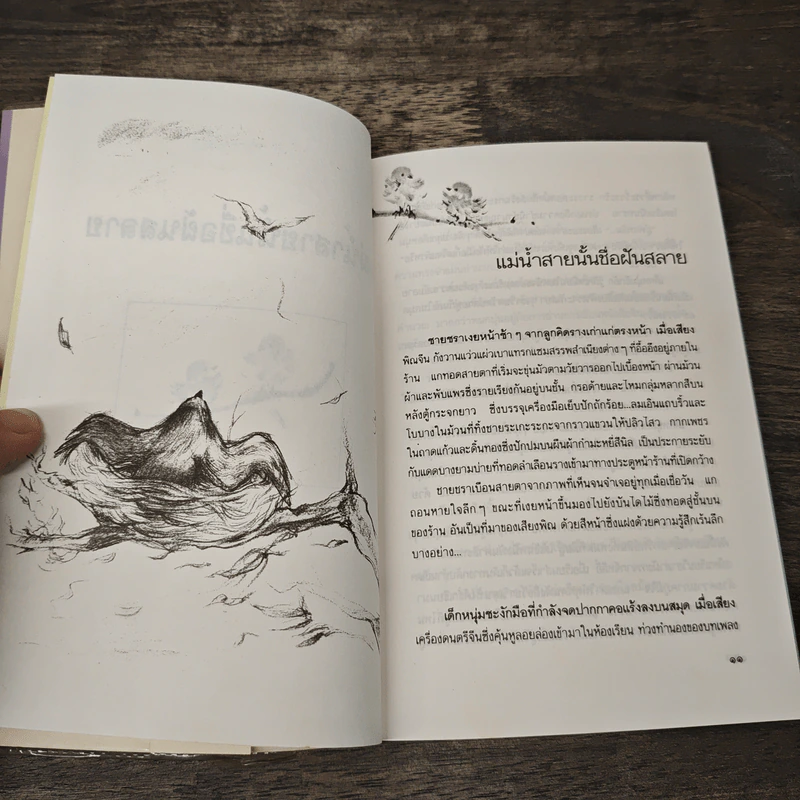 แม่น้ำสายนั้นชื่อฝันสลาย
ชายชราเงยหน้าช้า ๆ จากลูกคิดรางเก่าแก่ตรงหน้า เมื่อเสียง
พิณจีน กังวานแว่วแผ่วเบาแทรกแซมสรรพสำเนียงต่าง ๆ ที่อื้ออึงอยู่ภายใน
ร้าน แกทอดสายตาที่เริ่มจะขุ่นมัวตามวัยวารออกไปเบื้องหน้า ผ่านม้วน
ผ้าและพับแพรซึ่งรายเรียงกันอยู่บนชั้น กรอด้ายและไหมกลุ่มหลากสีบน
หลังตู้กระจกยาว ซึ่งบรรจุเครื่องมือเย็บปักถักร้อย...ลมเอินแถบริ้วและ
โบบางในม้วนที่ทิ้งชายระเกะระกะจากราวแขวนให้ปลิวไสว กากเพชร
ในถาดแก้วและดิ้นทองซึ่งปักปมบนผืนผ้ากำมะหยี่สีนิล เป็นประกายระยับ
กับแดดบางยามบ่ายที่ทอดลำเลือนรางเข้ามาทางประตูหน้าร้านที่เปิดกว้าง
ชายชราเบือนสายตาจากภาพที่เห็นจนจำเจอยู่ทุกเมื่อเชื่อวัน แก
ถอนหายใจลึก ๆ ขณะที่เงยหน้าขึ้นมองไปยังบันไดไม้ซึ่งทอดสู่ชั้นบน
ของร้าน อันเป็นที่มาของเสียงพิณ ด้วยสีหน้าซึ่งแฝงด้วยความรู้สึกเร้นลึก
บางอย่าง...
เด็กหนุ่มชะงักมือที่กำลังจดปากกาคอแร้งลงบนสมุด เมื่อเสียง
เครื่องดนตรีจีนซึ่งคุ้นหูลอยล่องเข้ามาในห้องเรียน ท่วงทำนองของบทเพลง
๑๑